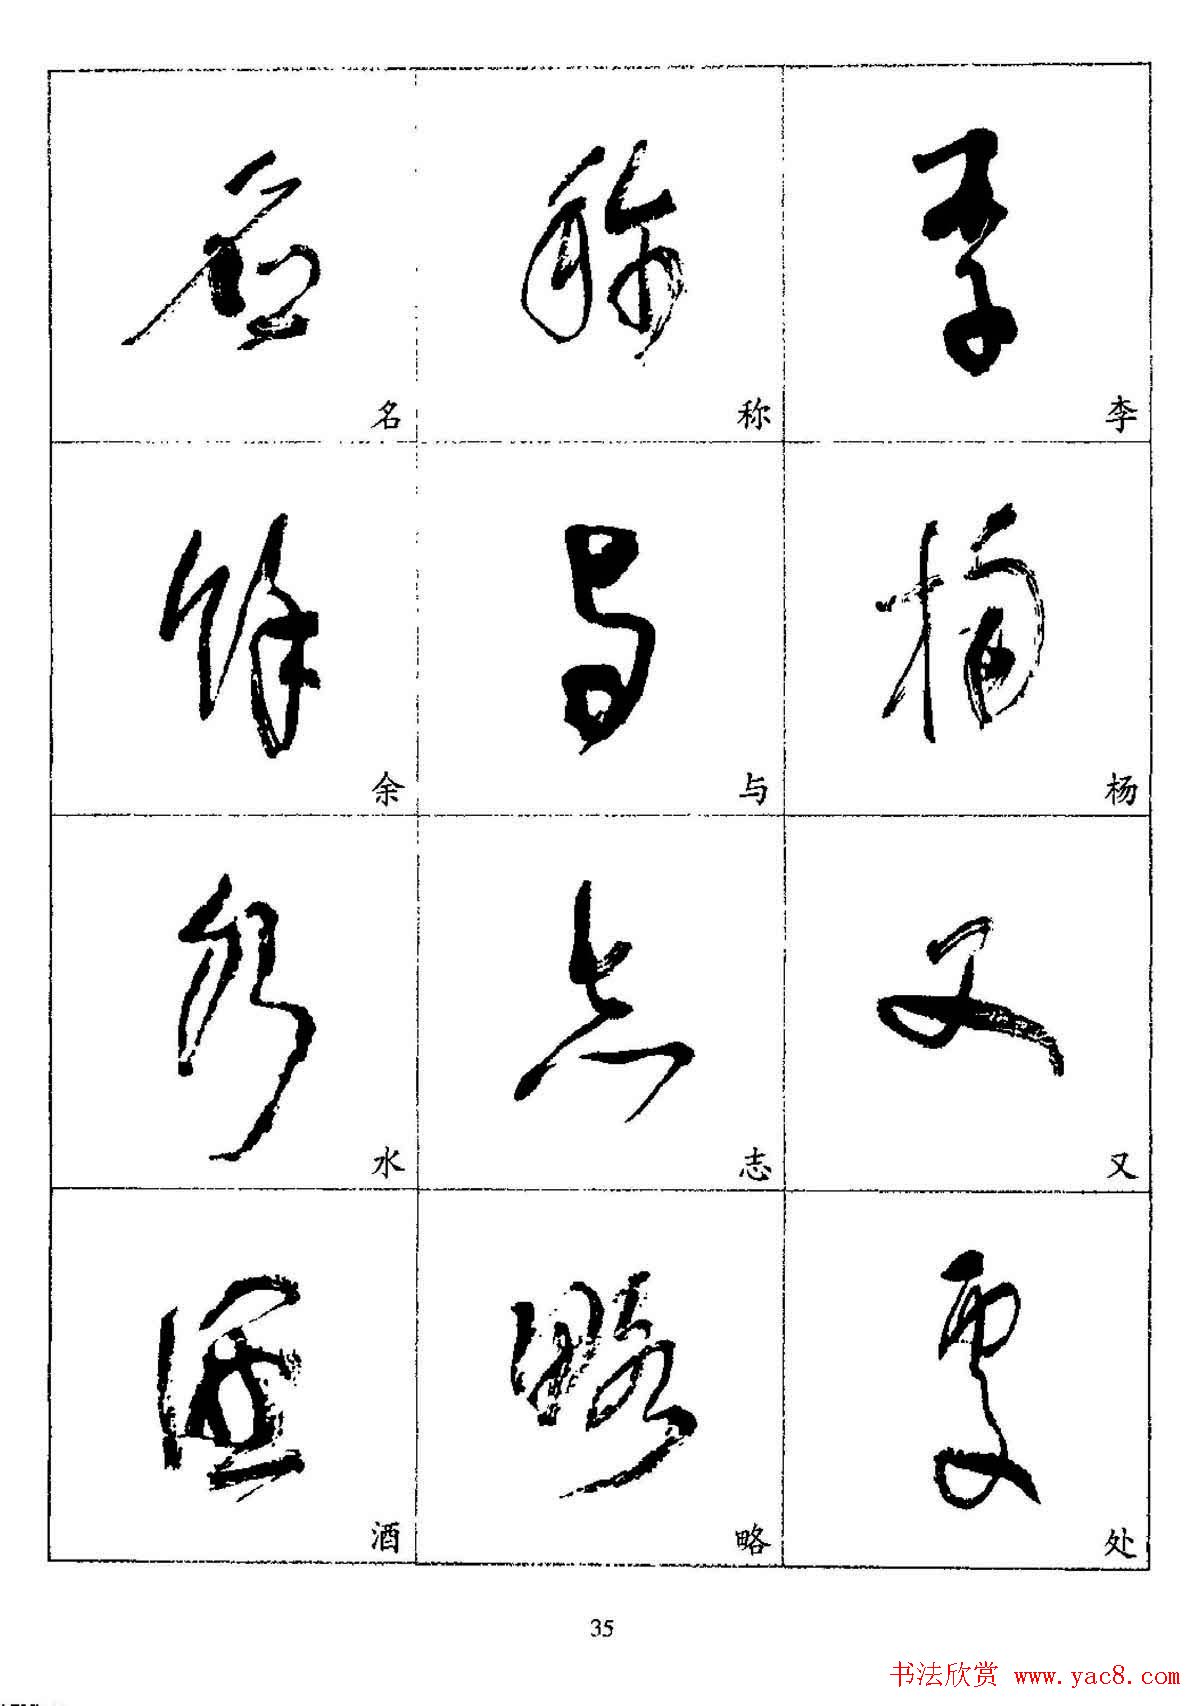 名 称 李
余 与 杨
水 志 又
酒 略 处
35
书法欣赏 www.yac8.com